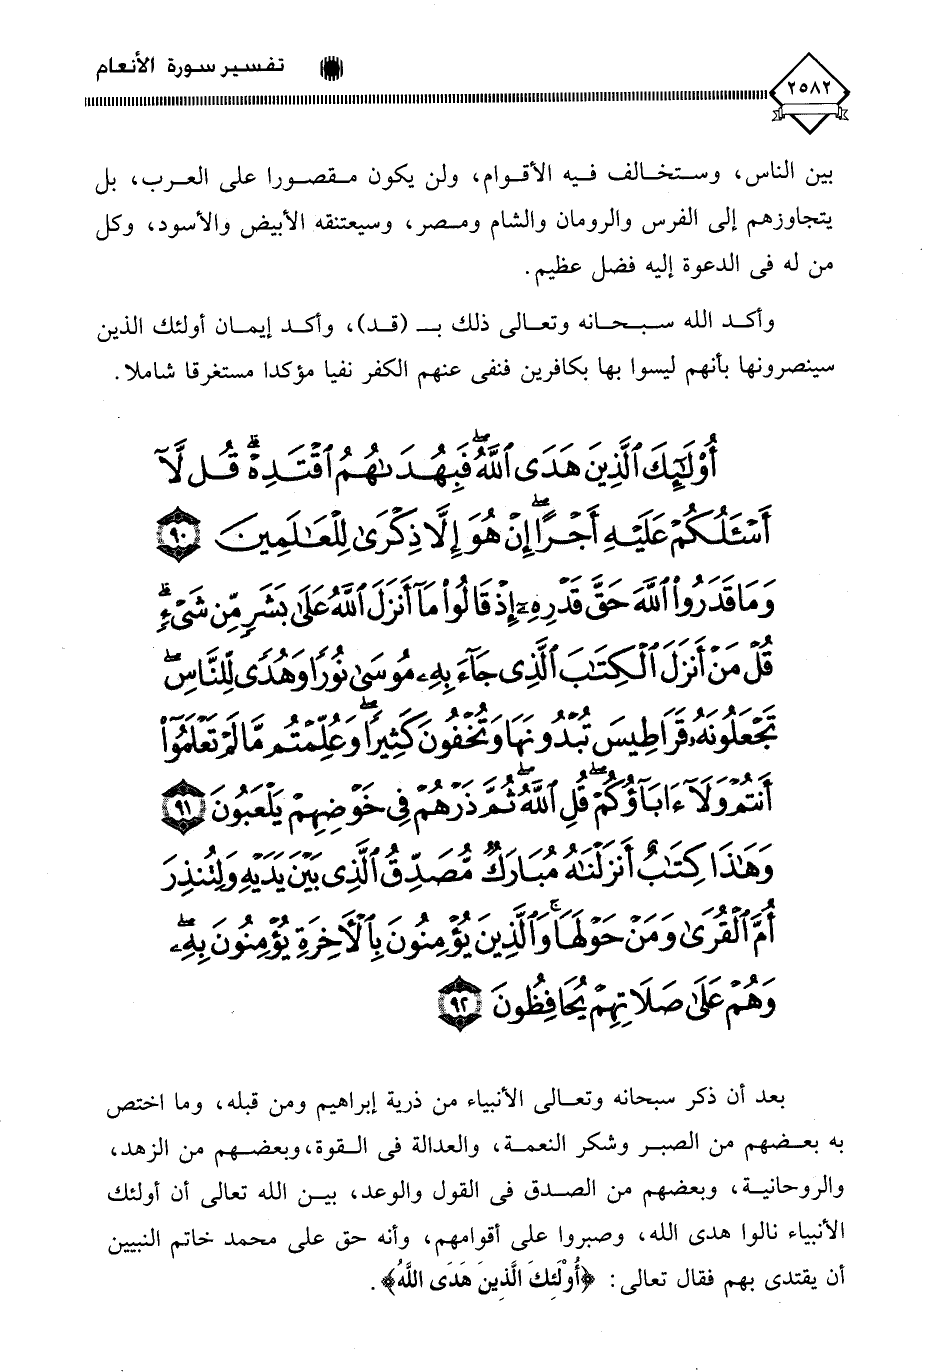 تفسير سورة الأنعام
٢٥٨٢
بين الناس، وستخالف فيه الأقوام، ولن يكون مقصورا على العرب، بل
يتجاوزهم إلى الفرس والرومان والشام ومصر، وسيعتنقه الأبيض والأسود، وكل
من له فى الدعوة إليه فضل عظيم.
وأكد الله سبحانه وتعالى ذلك بـ (قد)، وأكد إيمان أولئك الذين
سينصرونها بأنهم ليسوا بها بكافرين فنفى عنهم الكفر نفيا مؤكدا مستغرقا شاملا.
أُوْلَٰٓئِكَ ٱلَّذِينَ هَدَى ٱللَّهُۖ فَبِهُدَىٰهُمُ ٱقْتَدِهْۗ قُل لَّآ
أَسْـَٔلُكُمْ عَلَيْهِ أَجْرًاۖ إِنْ هُوَ إِلَّا ذِكْرَىٰ لِلْعَٰلَمِينَ ٩٠
وَمَا قَدَرُوا۟ ٱللَّهَ حَقَّ قَدْرِهِۦٓ إِذْ قَالُوا۟ مَآ أَنزَلَ ٱللَّهُ عَلَىٰ بَشَرٍ مِّن شَىْءٍۗ
قُلْ مَنْ أَنزَلَ ٱلْكِتَٰبَ ٱلَّذِى جَآءَ بِهِۦ مُوسَىٰ نُورًا وَهُدًى لِّلنَّاسِۖ
تَجْعَلُونَهُۥ قَرَاطِيسَ تُبْدُونَهَا وَتُخْفُونَ كَثِيرًاۖ وَعُلِّمْتُم مَّا لَمْ تَعْلَمُوٓا۟
أَنتُمْ وَلَآ ءَابَآؤُكُمْۖ قُلِ ٱللَّهُۖ ثُمَّ ذَرْهُمْ فِى خَوْضِهِمْ يَلْعَبُونَ ٩١
وَهَٰذَا كِتَٰبٌ أَنزَلْنَٰهُ مُبَارَكٌ مُّصَدِّقُ ٱلَّذِى بَيْنَ يَدَيْهِ وَلِتُنذِرَ
أُمَّ ٱلْقُرَىٰ وَمَنْ حَوْلَهَاۚ وَٱلَّذِينَ يُؤْمِنُونَ بِٱلْءَاخِرَةِ يُؤْمِنُونَ بِهِۦۖ
وَهُمْ عَلَىٰ صَلَاتِهِمْ يُحَافِظُونَ ٩٢
بعد أن ذكر سبحانه وتعالى الأنبياء من ذرية إبراهيم ومن قبله، وما اختص
به بعضهم من الصبر وشكر النعمة، والعدالة فى القوة، وبعضهم من الزهد،
والروحانية، وبعضهم من الصدق فى القول والوعد، بين الله تعالى أن أولئك
الأنبياء نالوا هدى الله، وصبروا على أقوامهم، وأنه حق على محمد خاتم النبيين
أن يقتدى بهم فقال تعالى: ﴿أُوْلَئِكَ الَّذِينَ هَدَى اللَّهُ﴾.